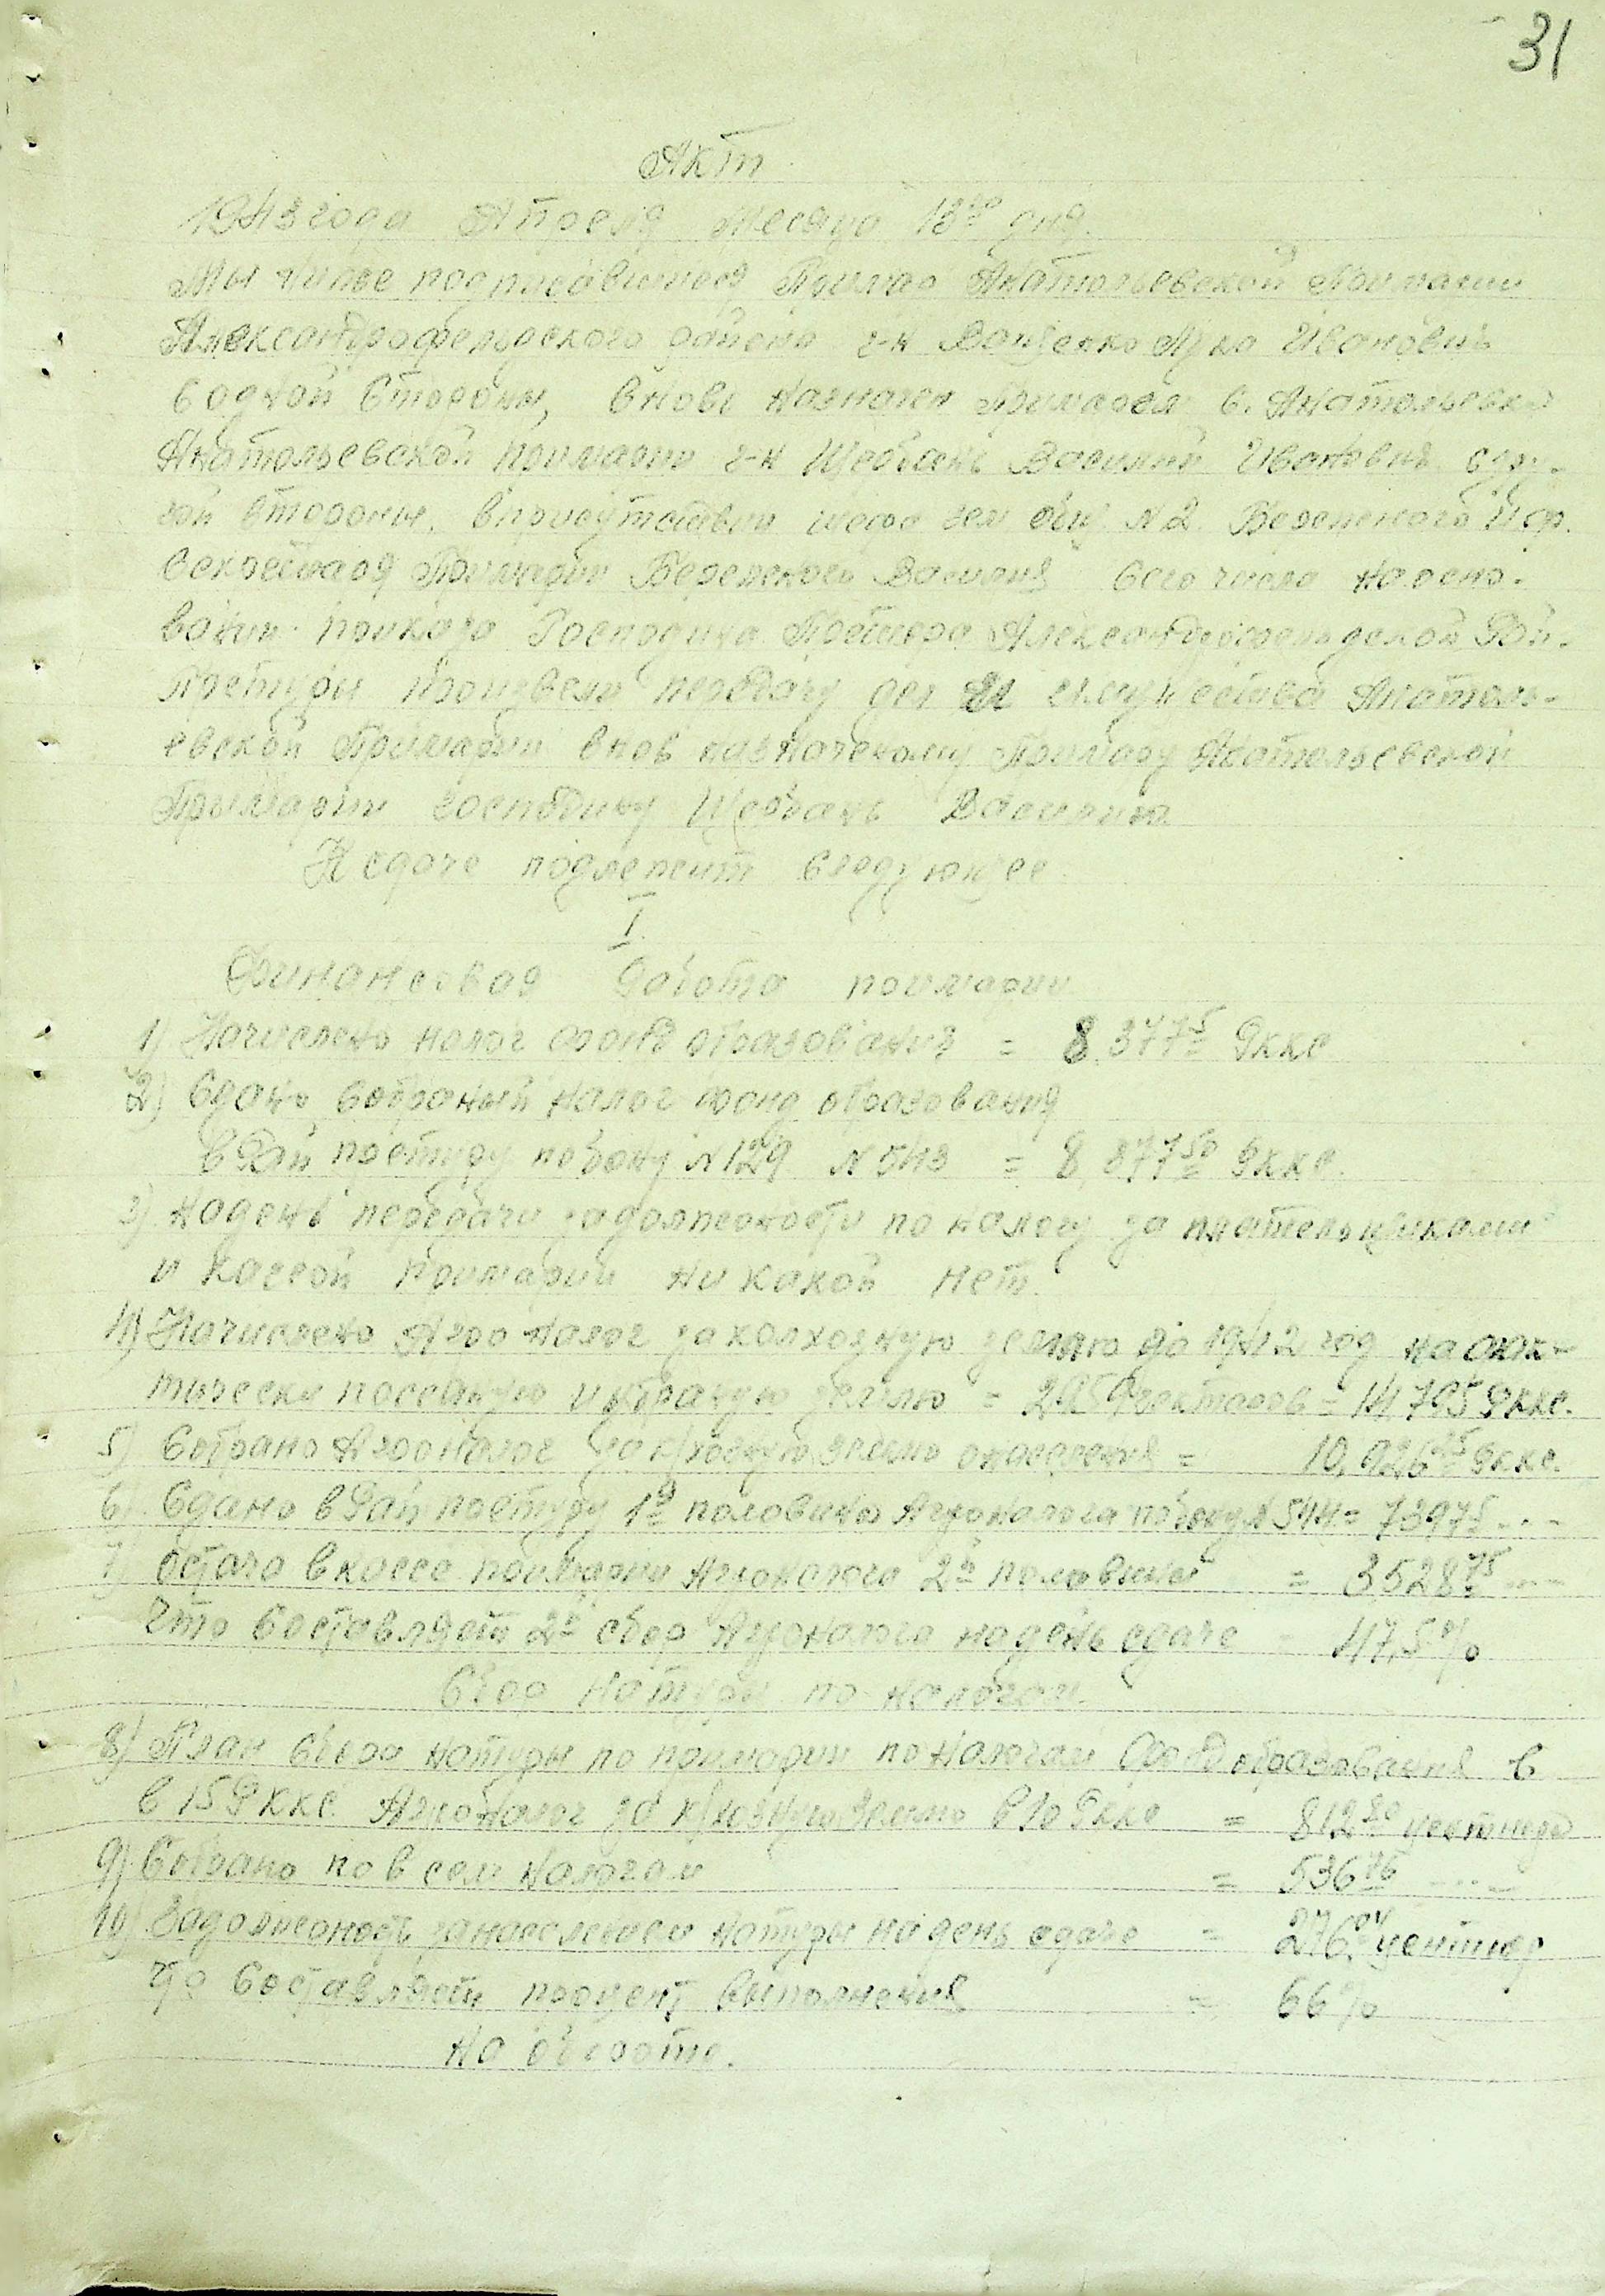 31
Акт
1943 года Апреля месяца 13го дня.
Мы ниже подписавшиеся Примар Анатольевской Примарии
Александрофельдского района г-н Ващенко Лука Иванович
с одной стороны, вновь назначен Примарем с. Анатольевки
Анатольевской примарии г-н Щербань Василий Иванович с дру-
гой стороны. в присутствии шефа зем общ. N 2.
Секретаря Примарии Василия сего числа на осно-
вании приказа Господина Претора Александрофельдской Рай-
претуры произвели передачу дел и имущества Анатоль-
евской Примарии внов назначеному Примару Анатольевской
Примарии господину Щербань Василию.
К сдаче подлежит следующее
I.
Финансовая работа примарии
1) Начислено налог фонд образования = 8.377 5 Ркке
2) Сдано собраный налог фонд образования
в Рай претуру по бону N 129 N 543 = 8.877 50 Ркке.
3) На день передачи задолжености по налогу за плательщиками
и кассой примарии ни какой нет.
4) Начислено Агро налог за колхозную землю за 1942 год на фак-
тически посеяную и убраную землю = 2959 гектаров = 14,795 Ркке.
5) Собрано Агроналог за к/хозную землю с населения = 10,926 25 Ркке.
6) Сдано в Рай претуру 1я половина Агроналога по бону N 544 = 7397 5 ...
7) Остача в кассе примарии Агроналога 2я половины = 3528 75 ...
Что составляет 2й сбор Агроналога на день сдаче - 47,5%
Сбор Натуры по налогам.
8) План сбора натуры по примарии по налогам Фонд образования в
в 15 Ркке. Агроналог за к/хозную землю в 10 Ркке = 812 80 центнера
9) Собрано по всем налогам = 536 76 ...
10) Задолженость за населением натуры на день сдаче = 276 04 центнер
что составляет процент выполнения = 66%
На обороте.